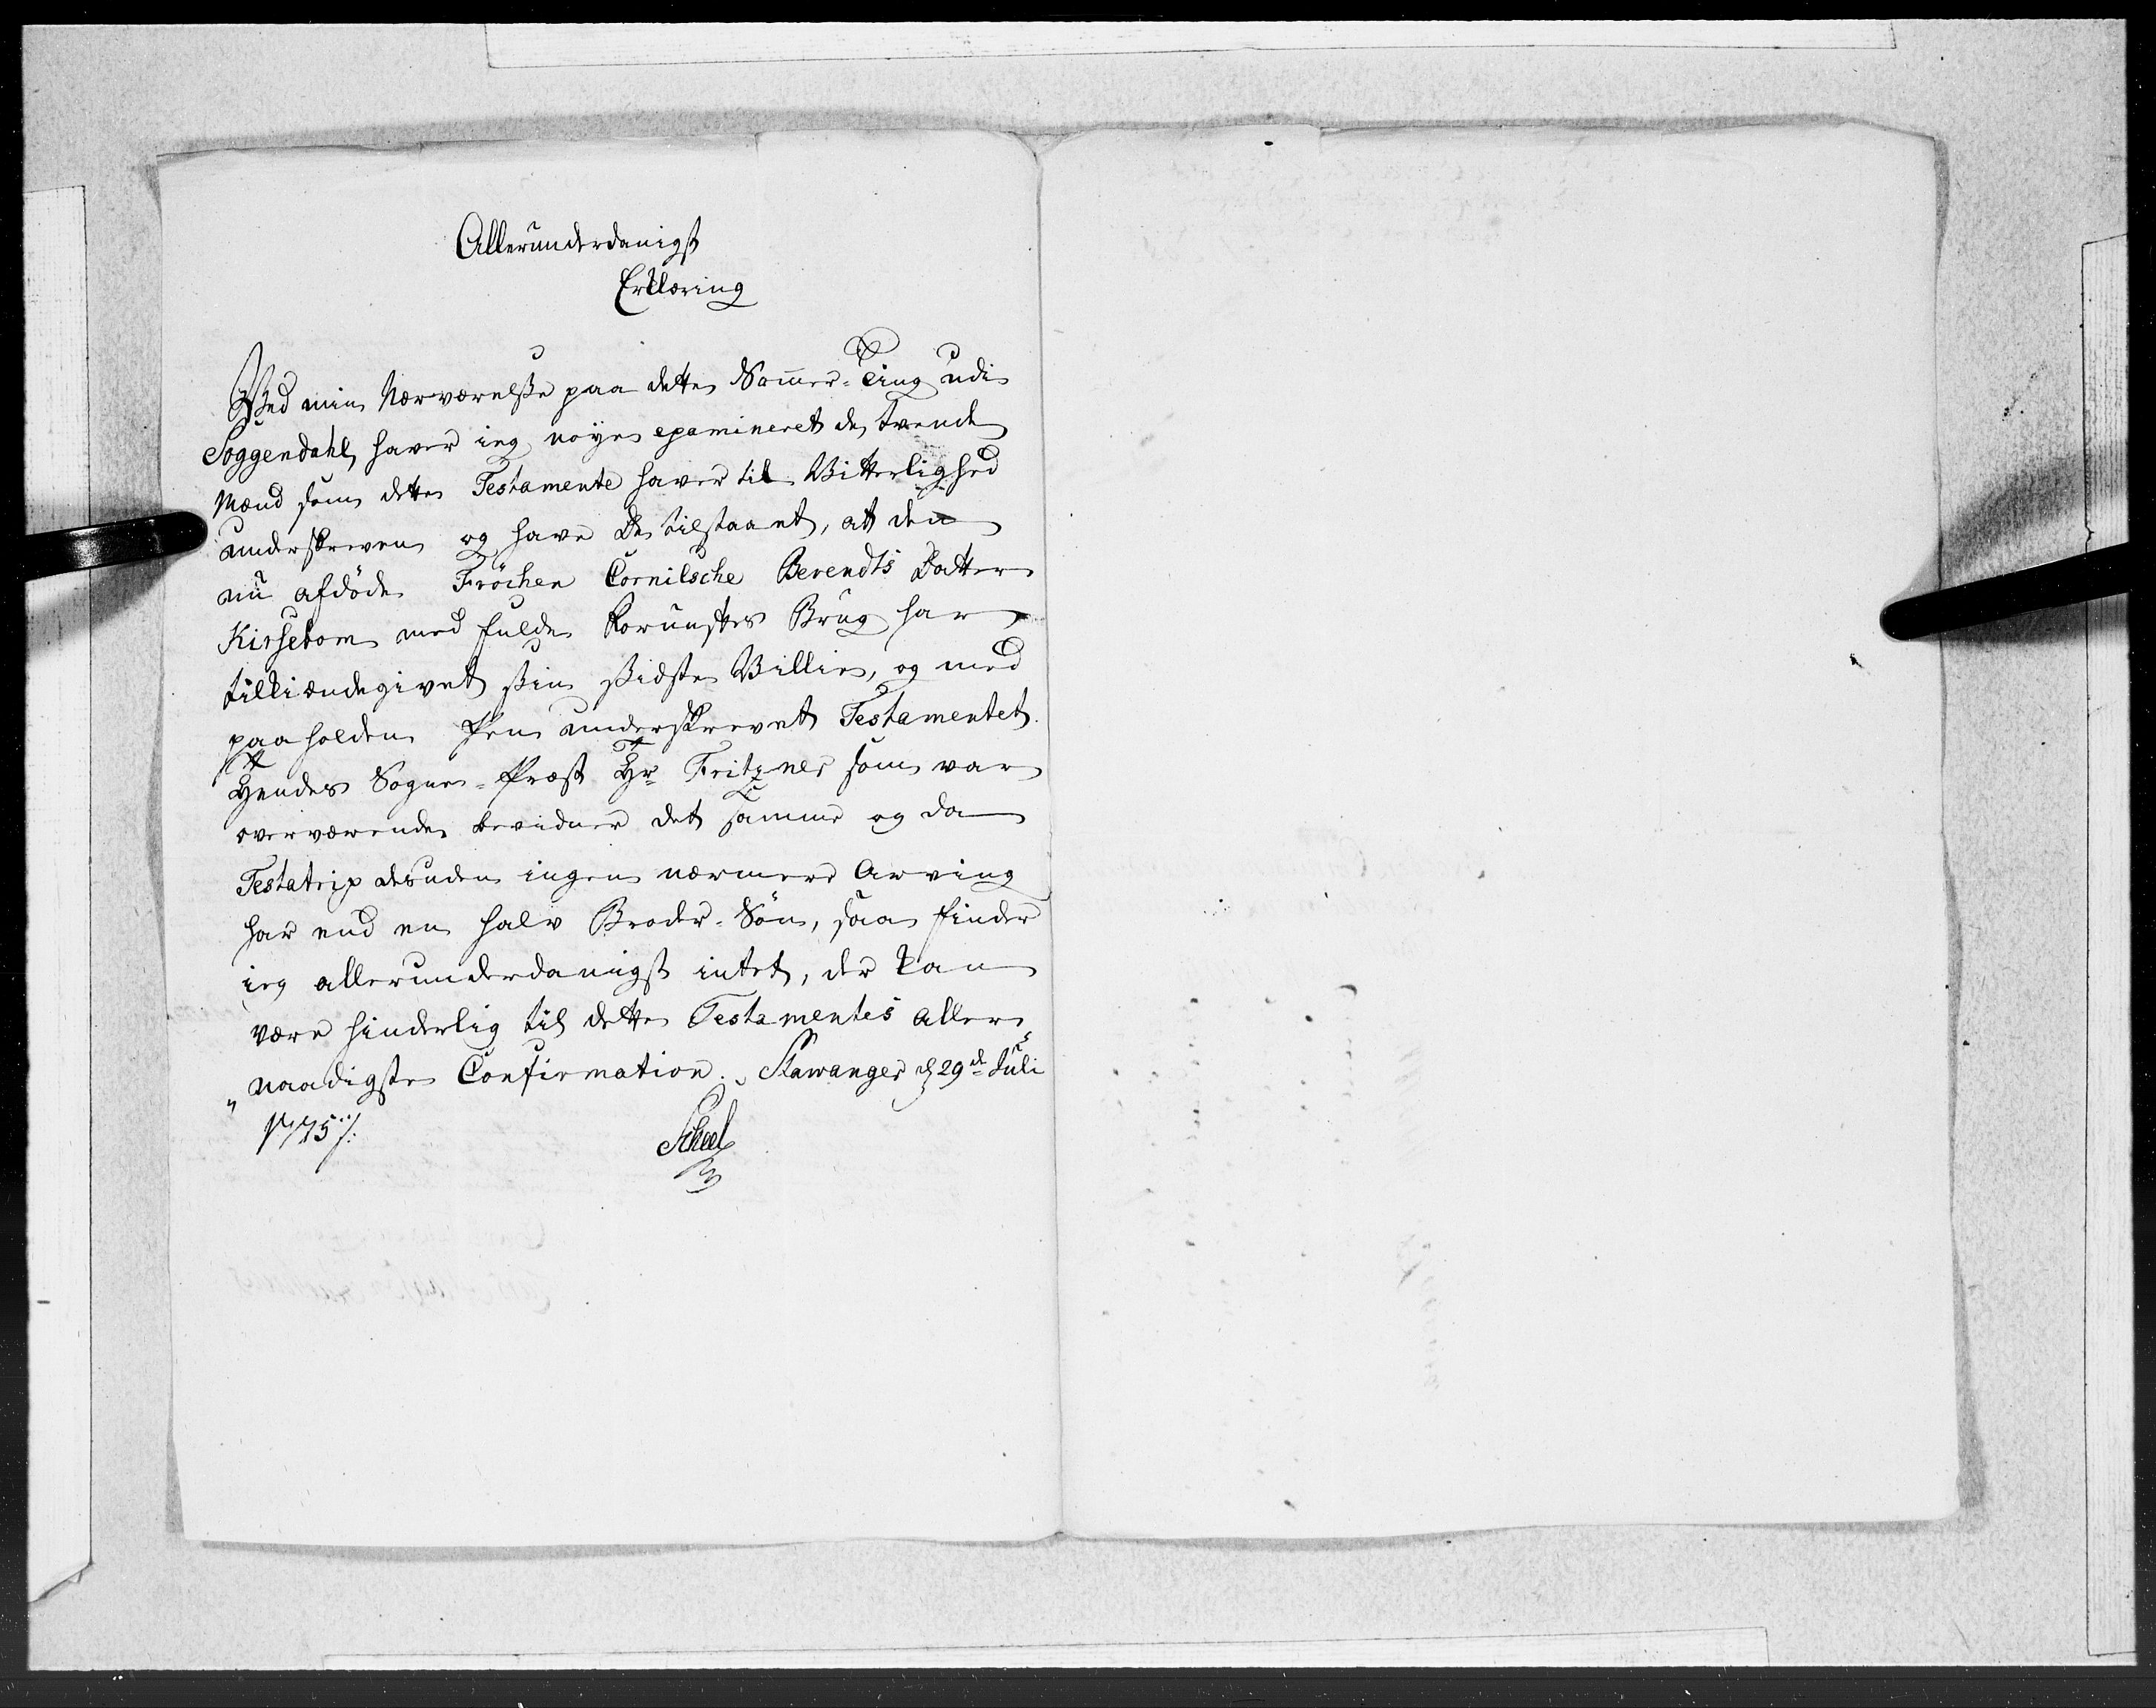 Allerunderdanigst
Erklæring
Wed min Nærværelße paa dette Som̄er-Ting udi
Soggendahl, haver ieg nøye examineret de tvende
Mænd som dette Testamente haver til Vitterlighed
underskreven og have De tilstaaet, at den
nu afdøde Fröchen Cornilsche Berendts Datter
Kirsebom med fulde Forunftes Brug har
tilkiendegivet ßin ßidste Villie, og med
paaholden Pen underskrevet Testamentet.
Hendes Sogne-Præst Hr Fritzner som var
overværende bevidner det samme og da
Testatrix desuden ingen nærmere Arving
har end en halv Broder-Søn, saa finder
ieg allerunderdanigst intet, der kan
være hinderlig til dette Testamentes aller
naadigste Confirmation. Stavanger d 29de Juli
1757.
Scheel